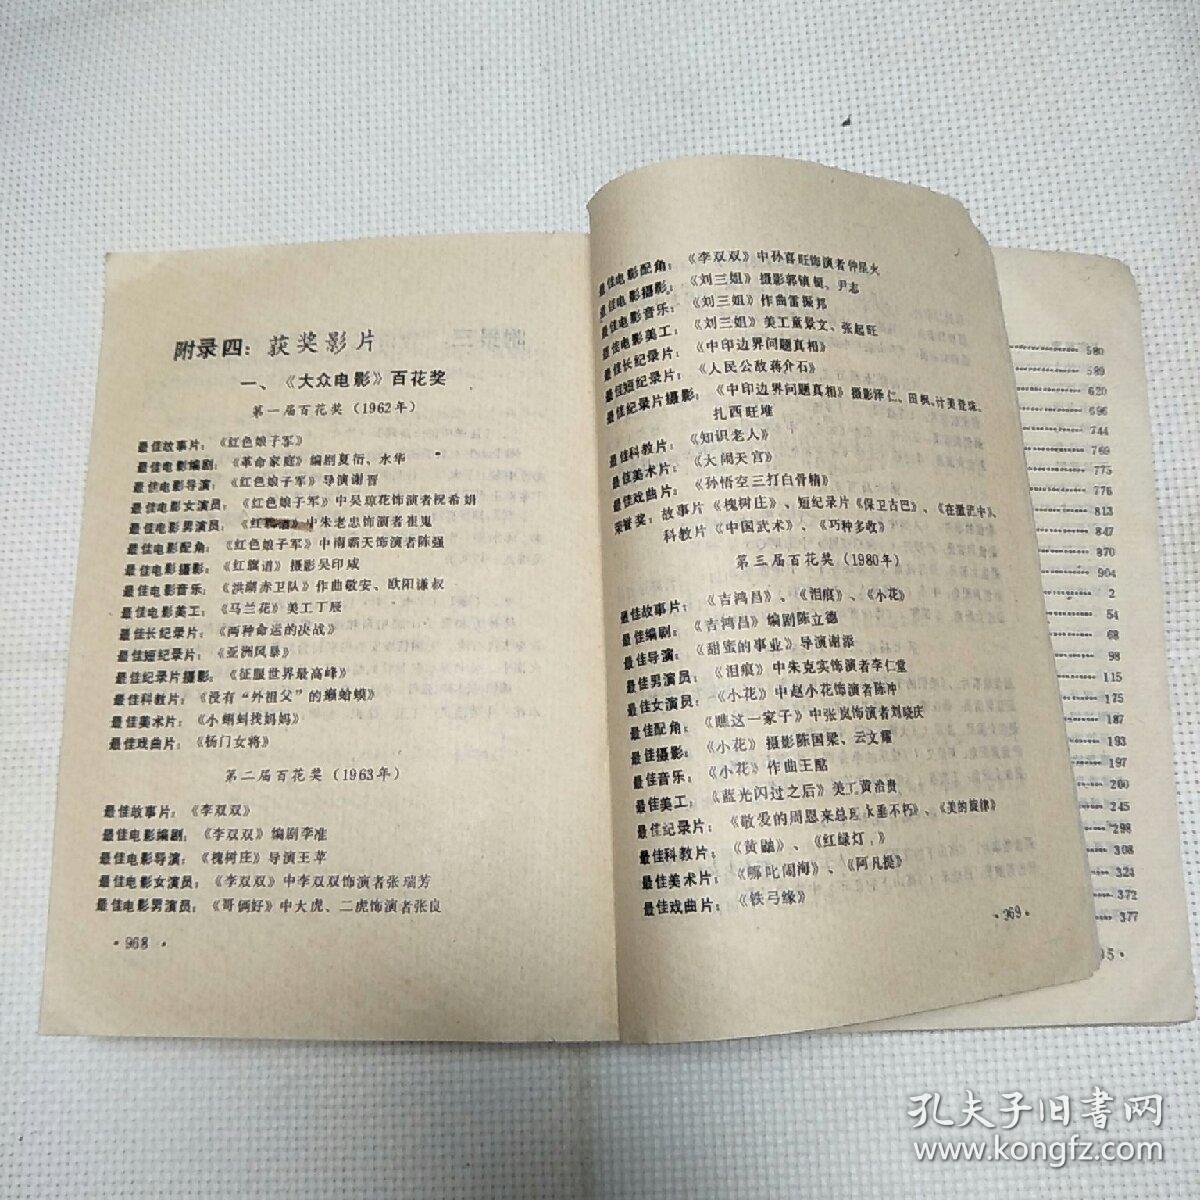 附录四：获奖影片
一、《大众电影》百花奖
第一届百花奖（1962年）
最佳故事片：《红色娘子军》
最佳电影编剧：《革命家庭》编剧夏衍、水华
最佳电影导演：《红色娘子军》导演谢晋
最佳电影女演员：《红色娘子军》中吴琼花饰演者祝希娟
最佳电影男演员：《红旗谱》中朱老忠饰演者崔嵬
最佳电影配角：《红色娘子军》中南霸天饰演者陈强
最佳电影摄影：《红旗谱》摄影吴印咸
最佳电影音乐：《洪湖赤卫队》作曲敬安、欧阳谦叔
最佳电影美工：《马兰花》美工丁辰
最佳长纪录片：《两种命运的决战》
最佳短纪录片：《亚洲风暴》
最佳纪录片摄影：《征服世界最高峰》
最佳科教片：《没有“外祖父”的癞蛤蟆》
最佳美术片：《小蝌蚪找妈妈》
最佳戏曲片：《杨门女将》
第二届百花奖（1963年）
最佳故事片：《李双双》
最佳电影编剧：《李双双》编剧李准
最佳电影导演：《槐树庄》导演王苹
最佳电影女演员：《李双双》中李双双饰演者张瑞芳
最佳电影男演员：《哥俩好》中大虎、二虎饰演者张良
·968·
最佳电影配角：《李双双》中孙喜旺饰演者仲星火
最佳电影摄影：《刘三姐》摄影郭镇铤、尹志
最佳电影音乐：《刘三姐》作曲雷振邦
最佳电影美工：《刘三姐》美工童景文、张起旺
最佳长纪录片：《中印边界问题真相》
最佳短纪录片：《人民公敌蒋介石》
最佳纪录片摄影：《中印边界问题真相》摄影泽仁、田枫、计美登珠、
扎西旺堆
最佳科教片：《知识老人》
最佳美术片：《大闹天宫》
最佳戏曲片：《孙悟空三打白骨精》
荣誉奖：故事片《槐树庄》、短纪录片《保卫古巴》、《在激流中》、
科教片《中国武术》、《巧种多收》
第三届百花奖（1980年）
最佳故事片：《吉鸿昌》、《泪痕》、《小花》
最佳编剧：《吉鸿昌》编剧陈立德
最佳导演：《甜蜜的事业》导演谢添
最佳男演员：《泪痕》中朱克实饰演者李仁堂
最佳女演员：《小花》中赵小花饰演者陈冲
最佳配角：《瞧这一家子》中张岚饰演者刘晓庆
最佳摄影：《小花》摄影陈国梁、云文耀
最佳音乐：《小花》作曲王酩
最佳美工：《蓝光闪过之后》美工黄洽贵
最佳纪录片：《敬爱的周恩来总理永垂不朽》、《美的旋律》
最佳科教片：《黄鼬》、《红绿灯，》
最佳美术片：《哪吒闹海》、《阿凡提》
最佳戏曲片：《铁弓缘》
·969·
580
589
620
696
744
769
775
776
813
847
870
904
2
54
68
98
115
175
187
193
197
200
245
298
308
323
372
377
孔夫子旧书网
www.kongfz.com